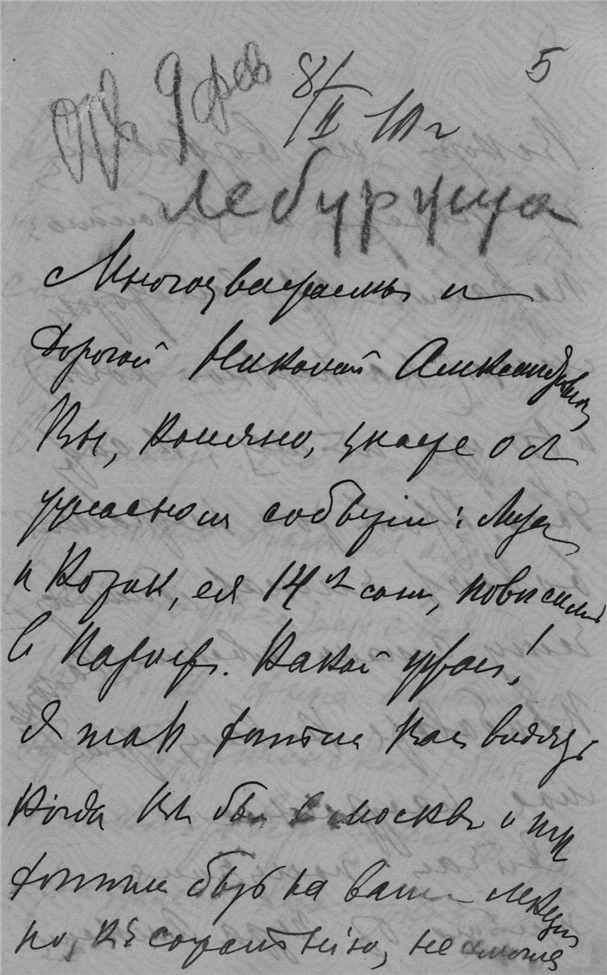 5
8/II 10 г
Многоуважаемый и
дорогой Николай Александрович
Вы, конечно, знаете об
ужасном событии: Муся
и Котик, ея 14 л сын, повисились
в Париже. Какой ужас!
Я так хотела Вас видеть
когда Вы были в Москве и так
хотела быть на вашей лекции
но, к сожалению, не смогла